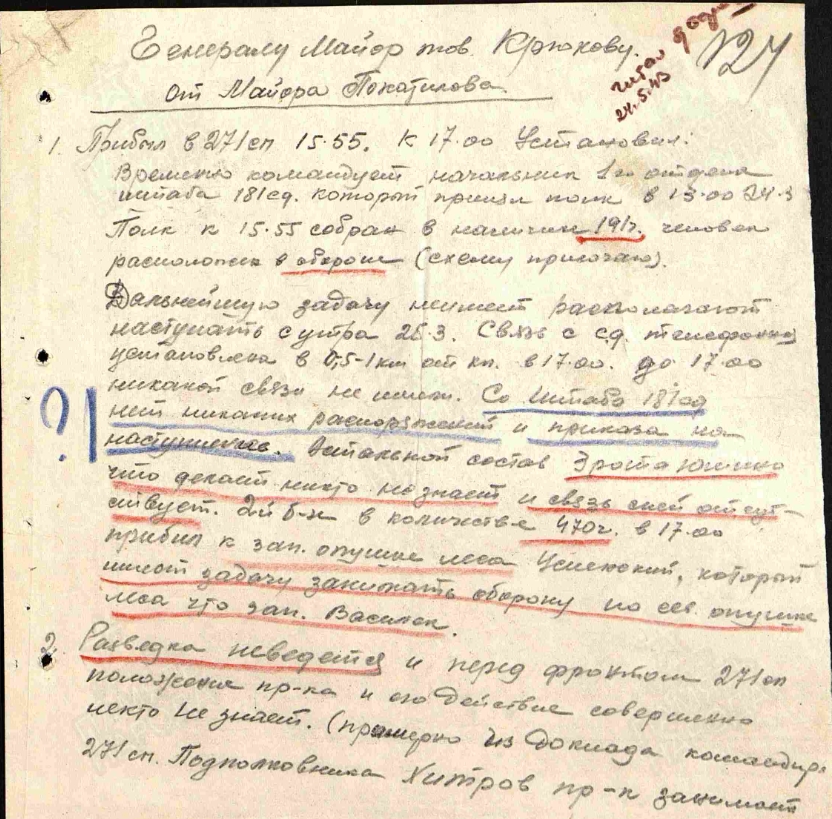 Генералу Майор тов. Крюкову.
от Майора Покатилова
читал
24.5.43
124
1. Прибыл в 271сп 15.55. К 17.00 Установил:
Временно командует начальник 1го отдела
штаба 181сд. который принял полк в 13.00 24.3
Полк к 15.55 собран в наличии 191ч. человек
расположен в обороне (схему прилагаю).
Дальнейшую задачу неимеет располагают
наступать с утра 25.3. Связь с сд. телефонная
установлена в 0,5-1км от кп. в 17.00. до 17.00
никакой связи не имели. Со штаба 181сд
нет никаких распоряжений и приказа на
наступление. Остальной состав
что делает никто не знает и связь с ней отсут-
ствует. 2й б-н в количестве 470ч. в 17.00
прибыл к зап. опушке леса который
имеет задачу занимать оборону по сев. опушке
леса что зап. Василек.
2. Разведка неведется и перед фронтом 271сп
положение пр-ка и его действие совершенно
некто не знает. (примерно из доклада командира
271сп. Подполковника Хитров пр-к занимает
?!